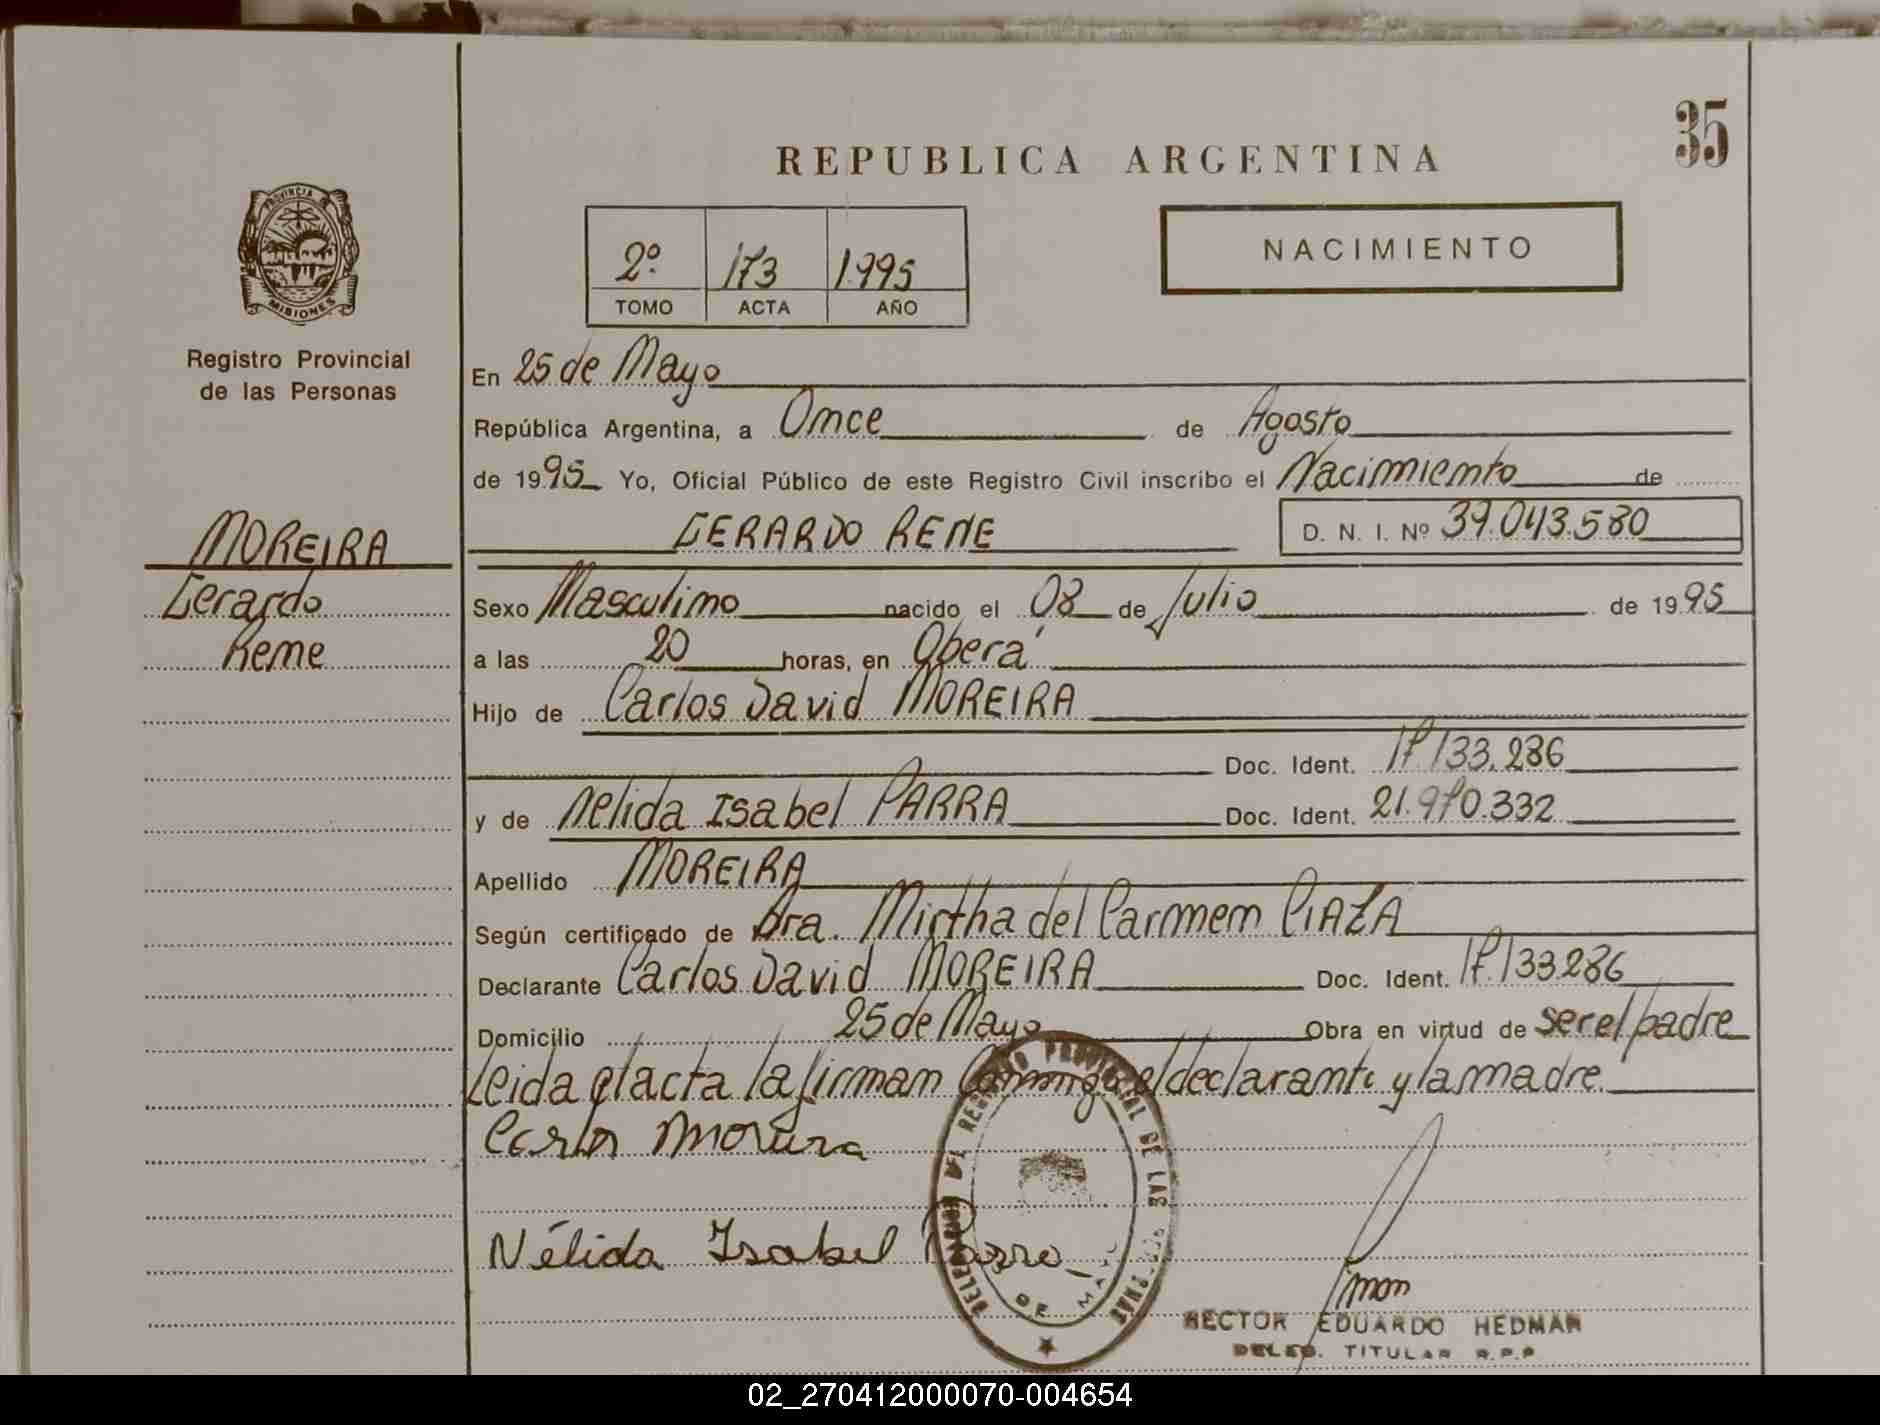 35
REPUBLICA ARGENTINA
PROVINCIA DE
MISIONES
2º 173 1995
TOMO ACTA AÑO
NACIMIENTO
Registro Provincial
de las Personas
En 25 de Mayo
República Argentina, a Once de Agosto
de 1995 Yo, Oficial Público de este Registro Civil inscribo el Nacimiento de
MOREIRA
Gerardo
Rene
GERARDO RENE D. N. I. Nº 39.043.580
Sexo Masculino nacido el 08 de Julio de 1995
a las 20 horas, en Oberá
Hijo de Carlos David MOREIRA
Doc. Ident. 17.133.286
y de Nelida Isabel PARRA Doc. Ident. 21.970.332
Apellido MOREIRA
Según certificado de Dra. Mirtha del Carmen
Declarante Carlos David MOREIRA Doc. Ident. 17.133.286
Domicilio 25 de Mayo Obra en virtud de ser el padre
Leida el acta la firman conmigo el declarante y la madre.
Carlos Moreira
Nélida Isabel Parra
DELEGACION DEL REGISTRO PROVINCIAL DE LAS PERSONAS
DE MAYO
HECTOR EDUARDO HEDMAN
DELEG. TITULAR R.P.P.
02_270412000070-004654